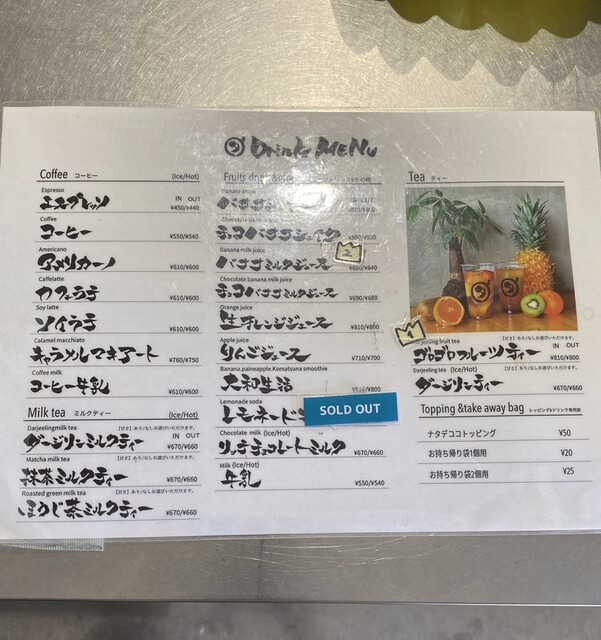 Drink MENU
Coffee コーヒー (Ice/Hot)
Espresso
エスプレッソ
IN OUT
¥450/¥440
Coffee
コーヒー ¥550/¥540
Americano
アメリカーノ ¥610/¥600
Caffelatte
カフェラテ ¥610/¥600
Soy latte
ソイラテ ¥610/¥600
Calamel macchiato
キャラメルマキアート ¥760/¥750
Coffee milk
コーヒー牛乳 ¥610/¥600
Milk tea ミルクティー (Ice/Hot)
Darjeelingmilk tea 【甘さ】あり/なしお選びいただけます。
ダージリンミルクティー
IN OUT
¥670/¥660
Matcha milk tea 【甘さ】あり/なしお選びいただけます。
抹茶ミルクティー ¥670/¥660
Roasted green milk tea
ほうじ茶ミルクティー ¥670/¥660
Fruits drink
バナナ
チョコバナナシェイク
Banana milk juice
2
バナナミルクジュース ¥650/¥640
Chocolate banana milk juice
チョコバナナミルクジュース ¥690/¥680
Orange juice
生オレンジジュース ¥810/¥800
Apple juice
りんごジュース ¥710/¥700
Banana.paineapple.Komatsuna smoothie
大和生活
Lemonade soda
レモネード
SOLD OUT
Chocolate milk (Ice/Hot)
リッチチョコレートミルク ¥670/¥660
Milk (Ice/Hot)
牛乳 ¥550/¥540
Tea ティー
fruit tea 【甘さ】あり/なしお選びいただけます。
ゴロゴロフルーツティー
IN OUT
¥810/¥800
Darjeeling tea (Ice/Hot)
ダージリンティー ¥670/¥660
Topping &take away bag トッピング&ドリンク専用袋
ナタデココトッピング ¥50
お持ち帰り袋1個用 ¥20
お持ち帰り袋2個用 ¥25